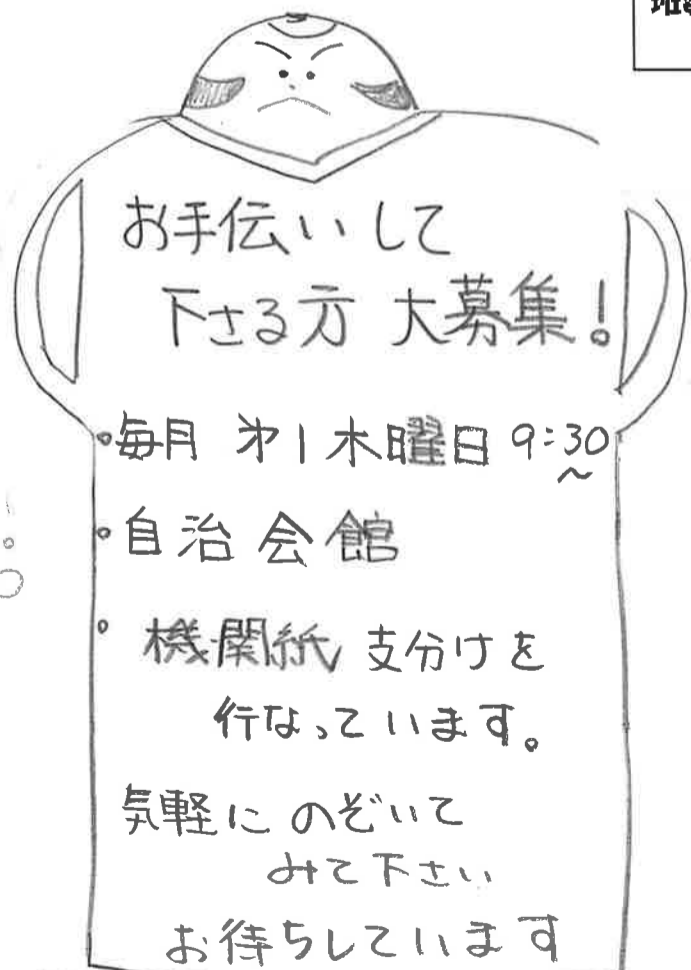 お手伝いして
下さる方 大募集!
・毎月 㐧1木曜日 9:30
~
・自治会館
・機関紙 支分けを
行なっています。
気軽に のぞいて
みて下さい
お待ちしています